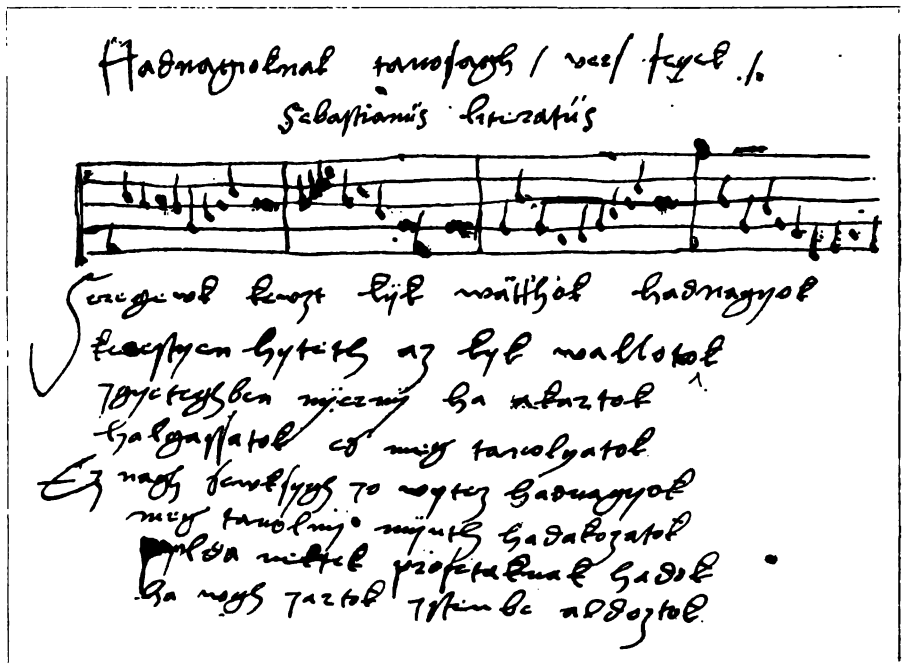 Hadnagioknak tanosagh / vers / feyek ./.
Sebastianus literatus
Seregewk kewzt kyk wätthok hadnagyok
kerestyen hyteth az kyk wallotok
Igyeteghben nyerny ha akartok
halgassatok es meg tanolyatok
Ez nagh sewksygh Jo wytez hadnagyok
meg tanolny mynth hadakozatok
pelda nektek profetaknak hadok
ha wgh Jartok Istenbe aldoztok